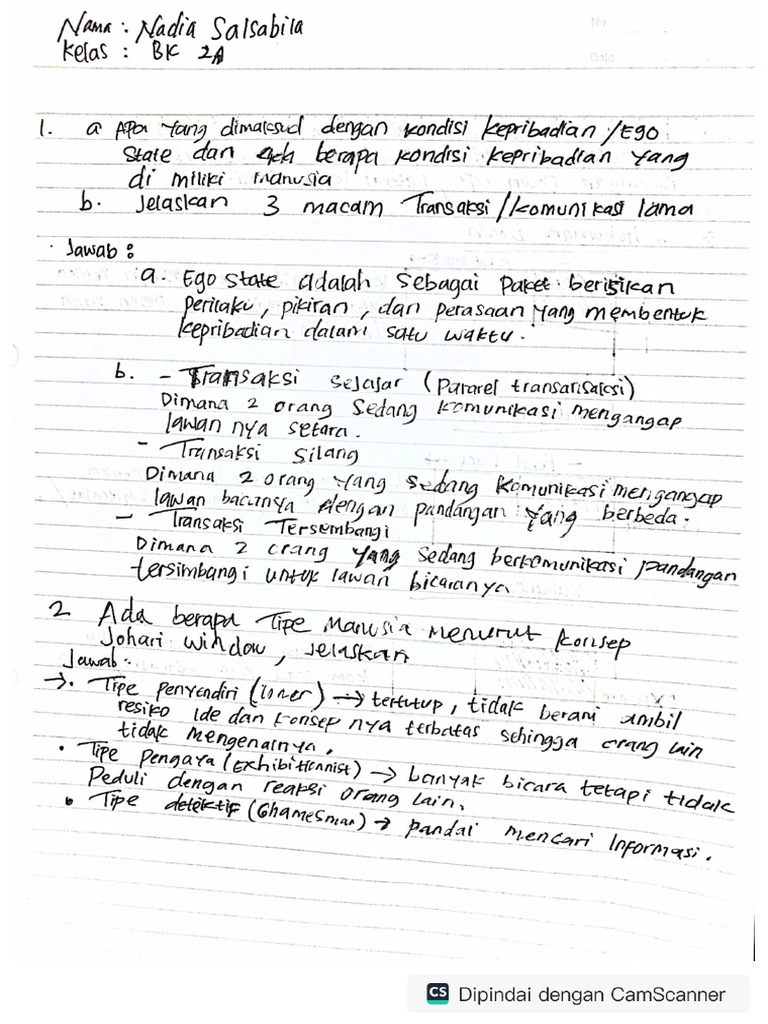 Nama : Nadia Salsabila
Kelas : BK 2A
No
Date
1. a Apa yang dimaksud dengan kondisi kepribadian / Ego
State dan berapa kondisi kepribadian yang
di miliki manusia
b. Jelaskan 3 macam Transaksi / komunikasi lama
Jawab :
a. Ego state adalah sebagai paket berisikan
perilaku, pikiran, dan perasaan yang membentuk
kepribadian dalam satu waktu.
b. - Transaksi sejajar (Pararel transaksi)
Dimana 2 orang sedang komunikasi mengangap
lawan nya setara.
- Transaksi Silang
Dimana 2 orang yang sedang komunikasi mengangap
lawan bacanya dengan pandangan yang berbeda.
- Transaksi Tersembangi
Dimana 2 orang yang sedang berkomunikasi pandangan
tersimbangi untuk lawan bicaranya
2 Ada berapa Tipe Manusia menurut konsep
Johari window, jelaskan
Jawab :
→ • Tipe penyendiri (loner) → tertutup, tidak berani ambil
resiko ide dan konsep nya terbatas sehingga orang lain
tidak mengenalnya.
• Tipe Pengaya (Exhibitionnist) → banyak bicara tetapi tidak
Peduli dengan reaksi orang lain.
• Tipe detektif (Ghamesman) → pandai mencari Informasi.
CS Dipindai dengan CamScanner